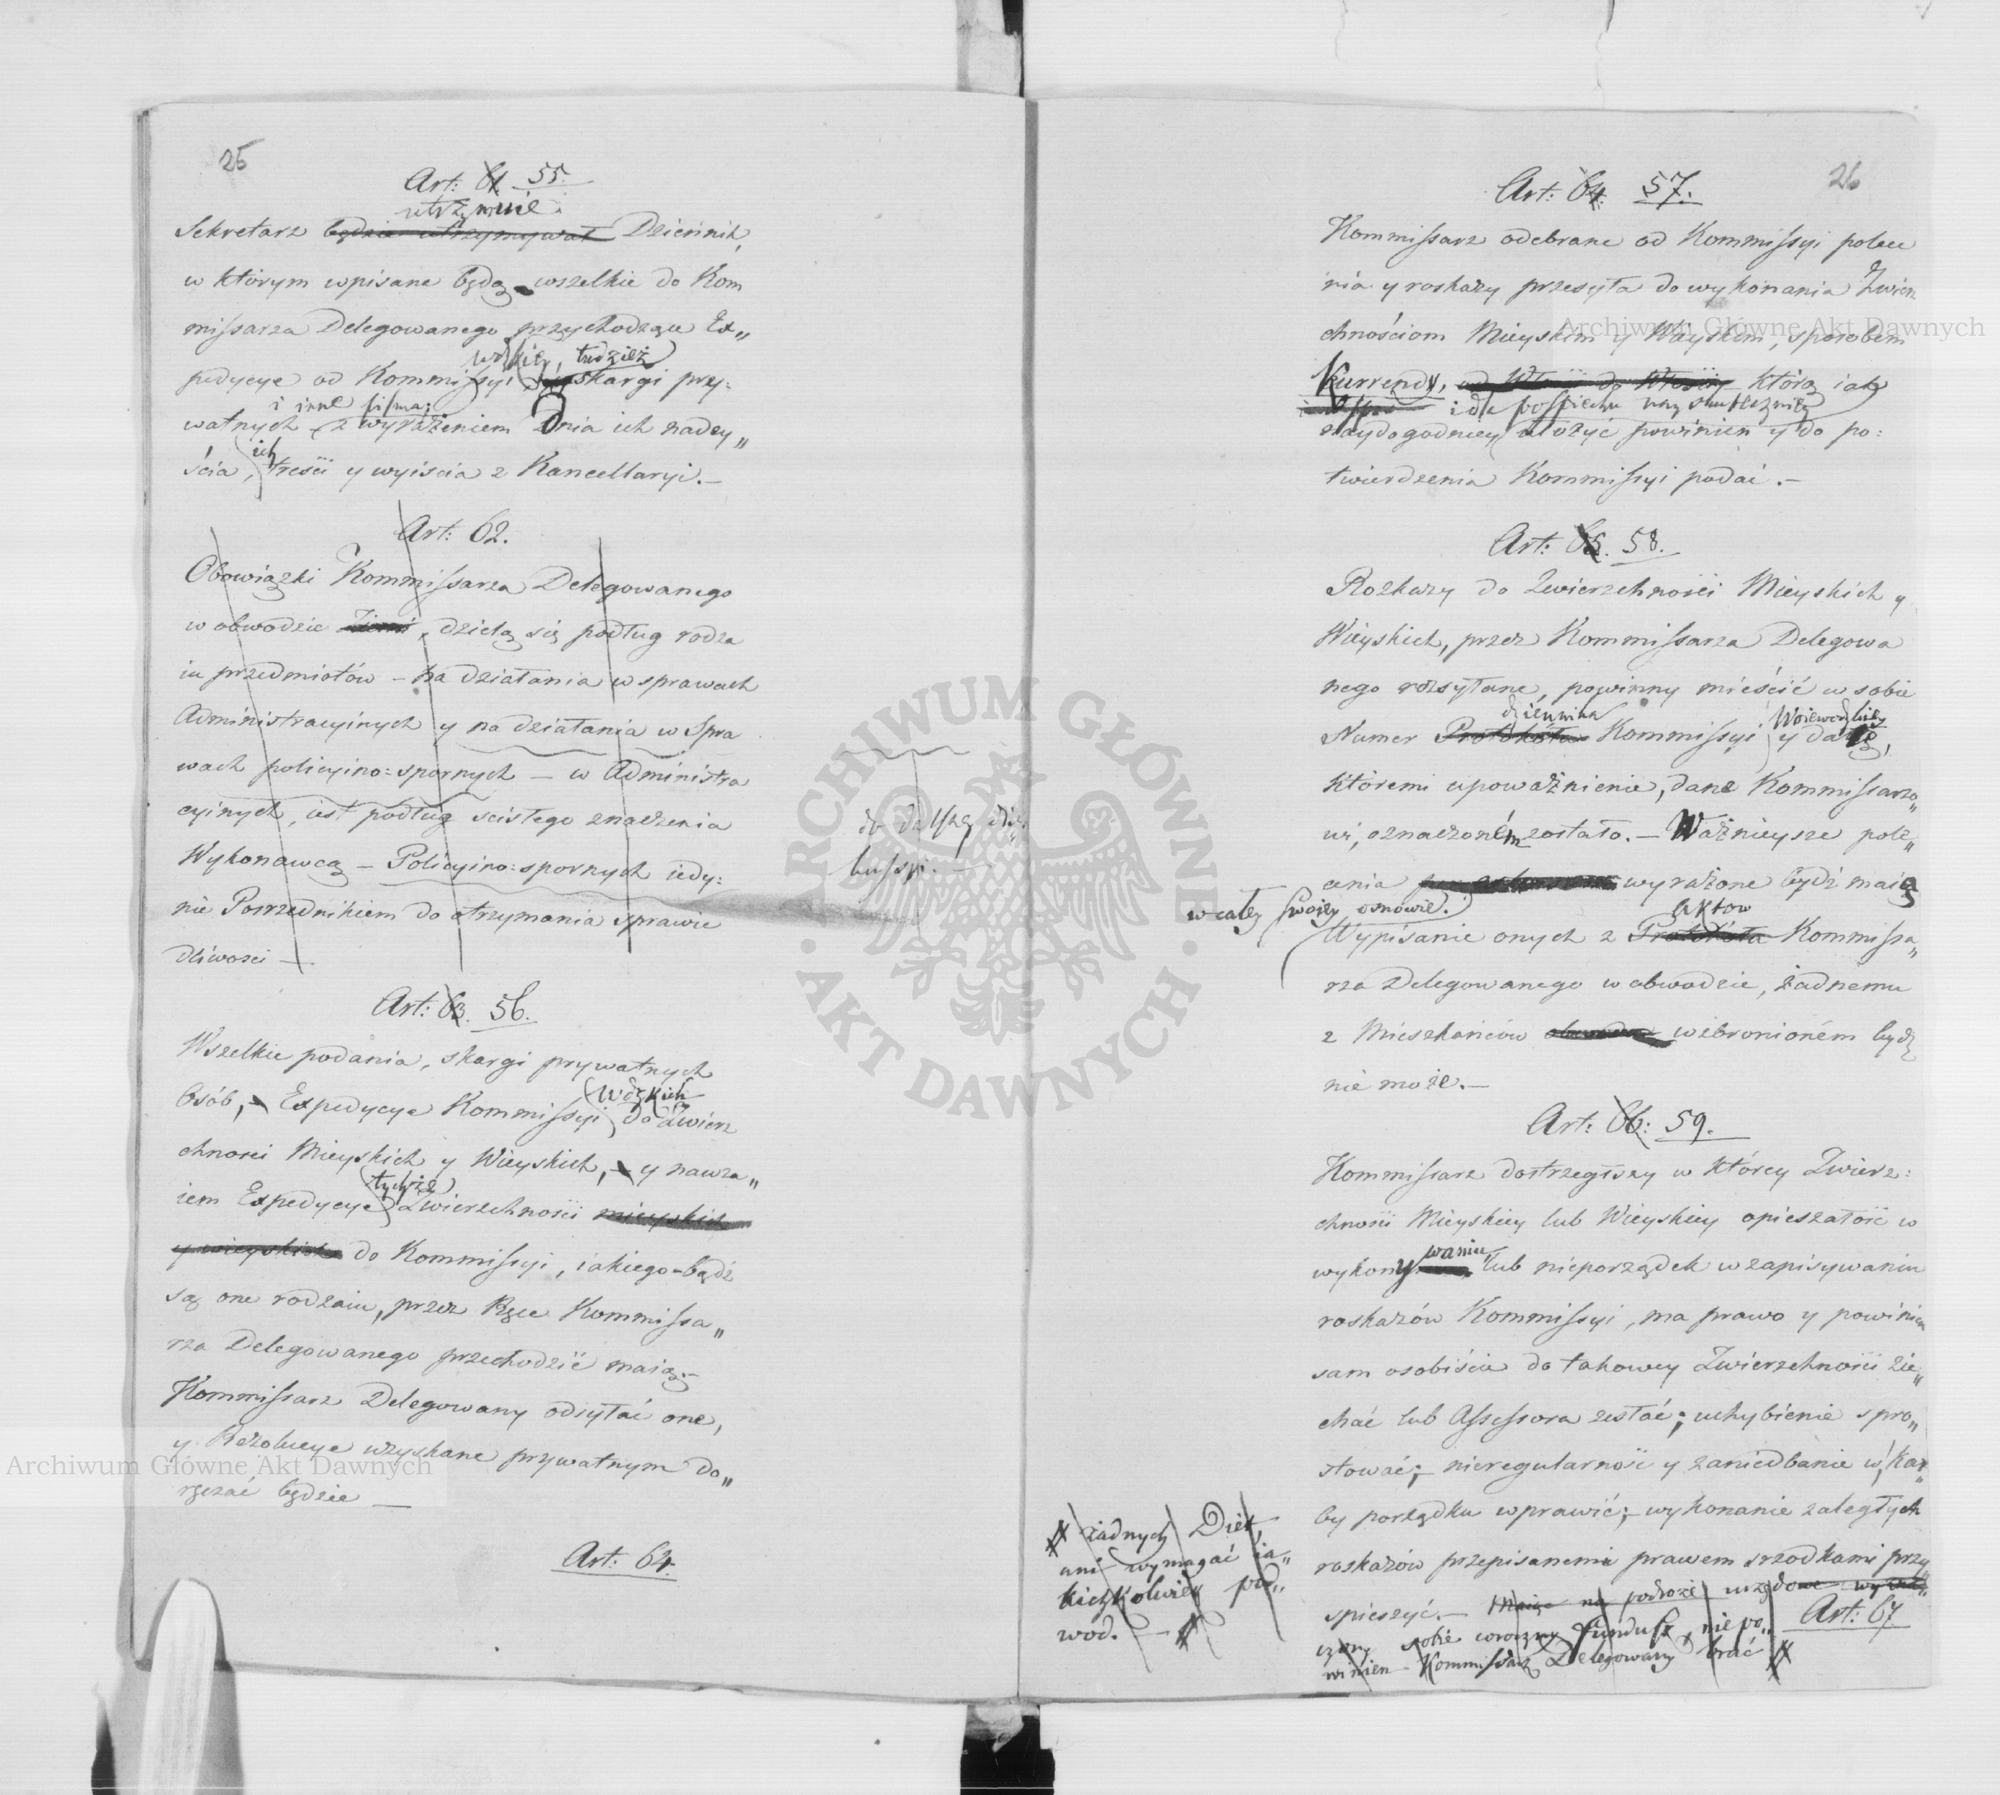 25
Art: 61. 55.
utrzymuie
Sekretarz będzie utrzymywał Dziennik,
w którym wpisane będą wszelkie do Kom
missarza Delegowanego przychodzące Ex„
wdzkiey, tudzież
pedycye od Kommissyi skargi pry:
i inne pisma;
watnych z wyrażeniem Dnia ich nadey„
ich
ścia, treści y wyiścia z Kancellaryi.—
Art: 62.
Obowiązki Kommissarza Delegowanego
w obwodzie Ziemi, dzielą się podług rodza
iu przedmiotów – na działania w sprawach
Administracyinych y na działania w Spra
wach policyino=spornych – w Administra
cyinych, iest podług scisłego znaczenia
Wykonawcą – Policyino=spornych iedy:
nie Posrzednikiem do otrzymania sprawie
dliwosci —
do dalszey dis„
kussyi. —
Art: 63. 56.
Wszelkie podania, skargi prywatnych
Osób, – Expedycye Kommissyi do Zwierz
Wdzkich
chnosci Mieyskich y Wieyskich, – y nawza„
tychże
iem Expedycye Zwierzchności mieyskich
y wieyskich do Kommissyi, iakiego=bądź
są one rodzaiu, przez Ręce Kommissa„
rza Delegowanego przechodzić maią.–
Kommissarz Delegowany odsyłać one,
y Rezolucye uzyskane prywatnym do„
ręczać będzie —
Art: 64.
26
Art: 64. 57.
Kommissarz odebrane od Kommissyi polece
nia y roskazy przesyła do wykonania Zwierz
chnościom Mieyskim y Wieyskim, sposobem
Kurrendy, od Włości do Włości – którą iak
i dla pospiechu nayskuteczniey
naydogodniey ułożyć powinien y do po:
twierdzenia Kommissyi podać.—
Art: 65. 58.
Rozkazy do Zwierzchności Mieyskich y
Wieyskich, przez Kommissarza Delegowa
nego rozsyłane, powinny mieścić w sobie
dziennika Woiewodzkiey
Numer Protokółu Kommissyi y datę,
któremi upoważnienie, dane Kommissarzo„
wi, oznaczoném zostało.— Ważnieysze pole„
cenia wyrażone bydź maią
w całey swoiey osnowie.
aktow
Wypisanie onych z Protokółu Kommissa„
rza Delegowanego w obwodzie, żadnemu
z Mieszkańców wzbronioném bydź
nie może.—
Art: 66: 59.
Kommissarz dostrzegłszy w którey Zwierz:
chności Mieyskiey lub Wieyskiey opieszałość w
waniu
wykony lub nieporządek w zapisywaniu
roskazów Kommissyi, ma prawo y powinien
sam osobiście do takowey Zwierzchności zie„
chać lub Assessora zesłać; uchybienie spro„
stować;– nieregularność y zaniedbanie w Kar„
by porządku wprawić;– wykonanie zaległych
roskazów przepisanemi prawem srzodkami przy„
spieszyć.— Maiąc na podroże urzędowe wyzna„
czony sobie roczny Fundusz, nie po„
winien Kommissarz Delegowany brać
żadnych Diet,
ani wymagać ia„
kichkolwiek pod„
wod. —
Art: 67.
Archiwum Główne Akt Dawnych
Archiwum Główne Akt Dawnych
ARCHIWUM GŁÓWNE
· AKT DAWNYCH ·